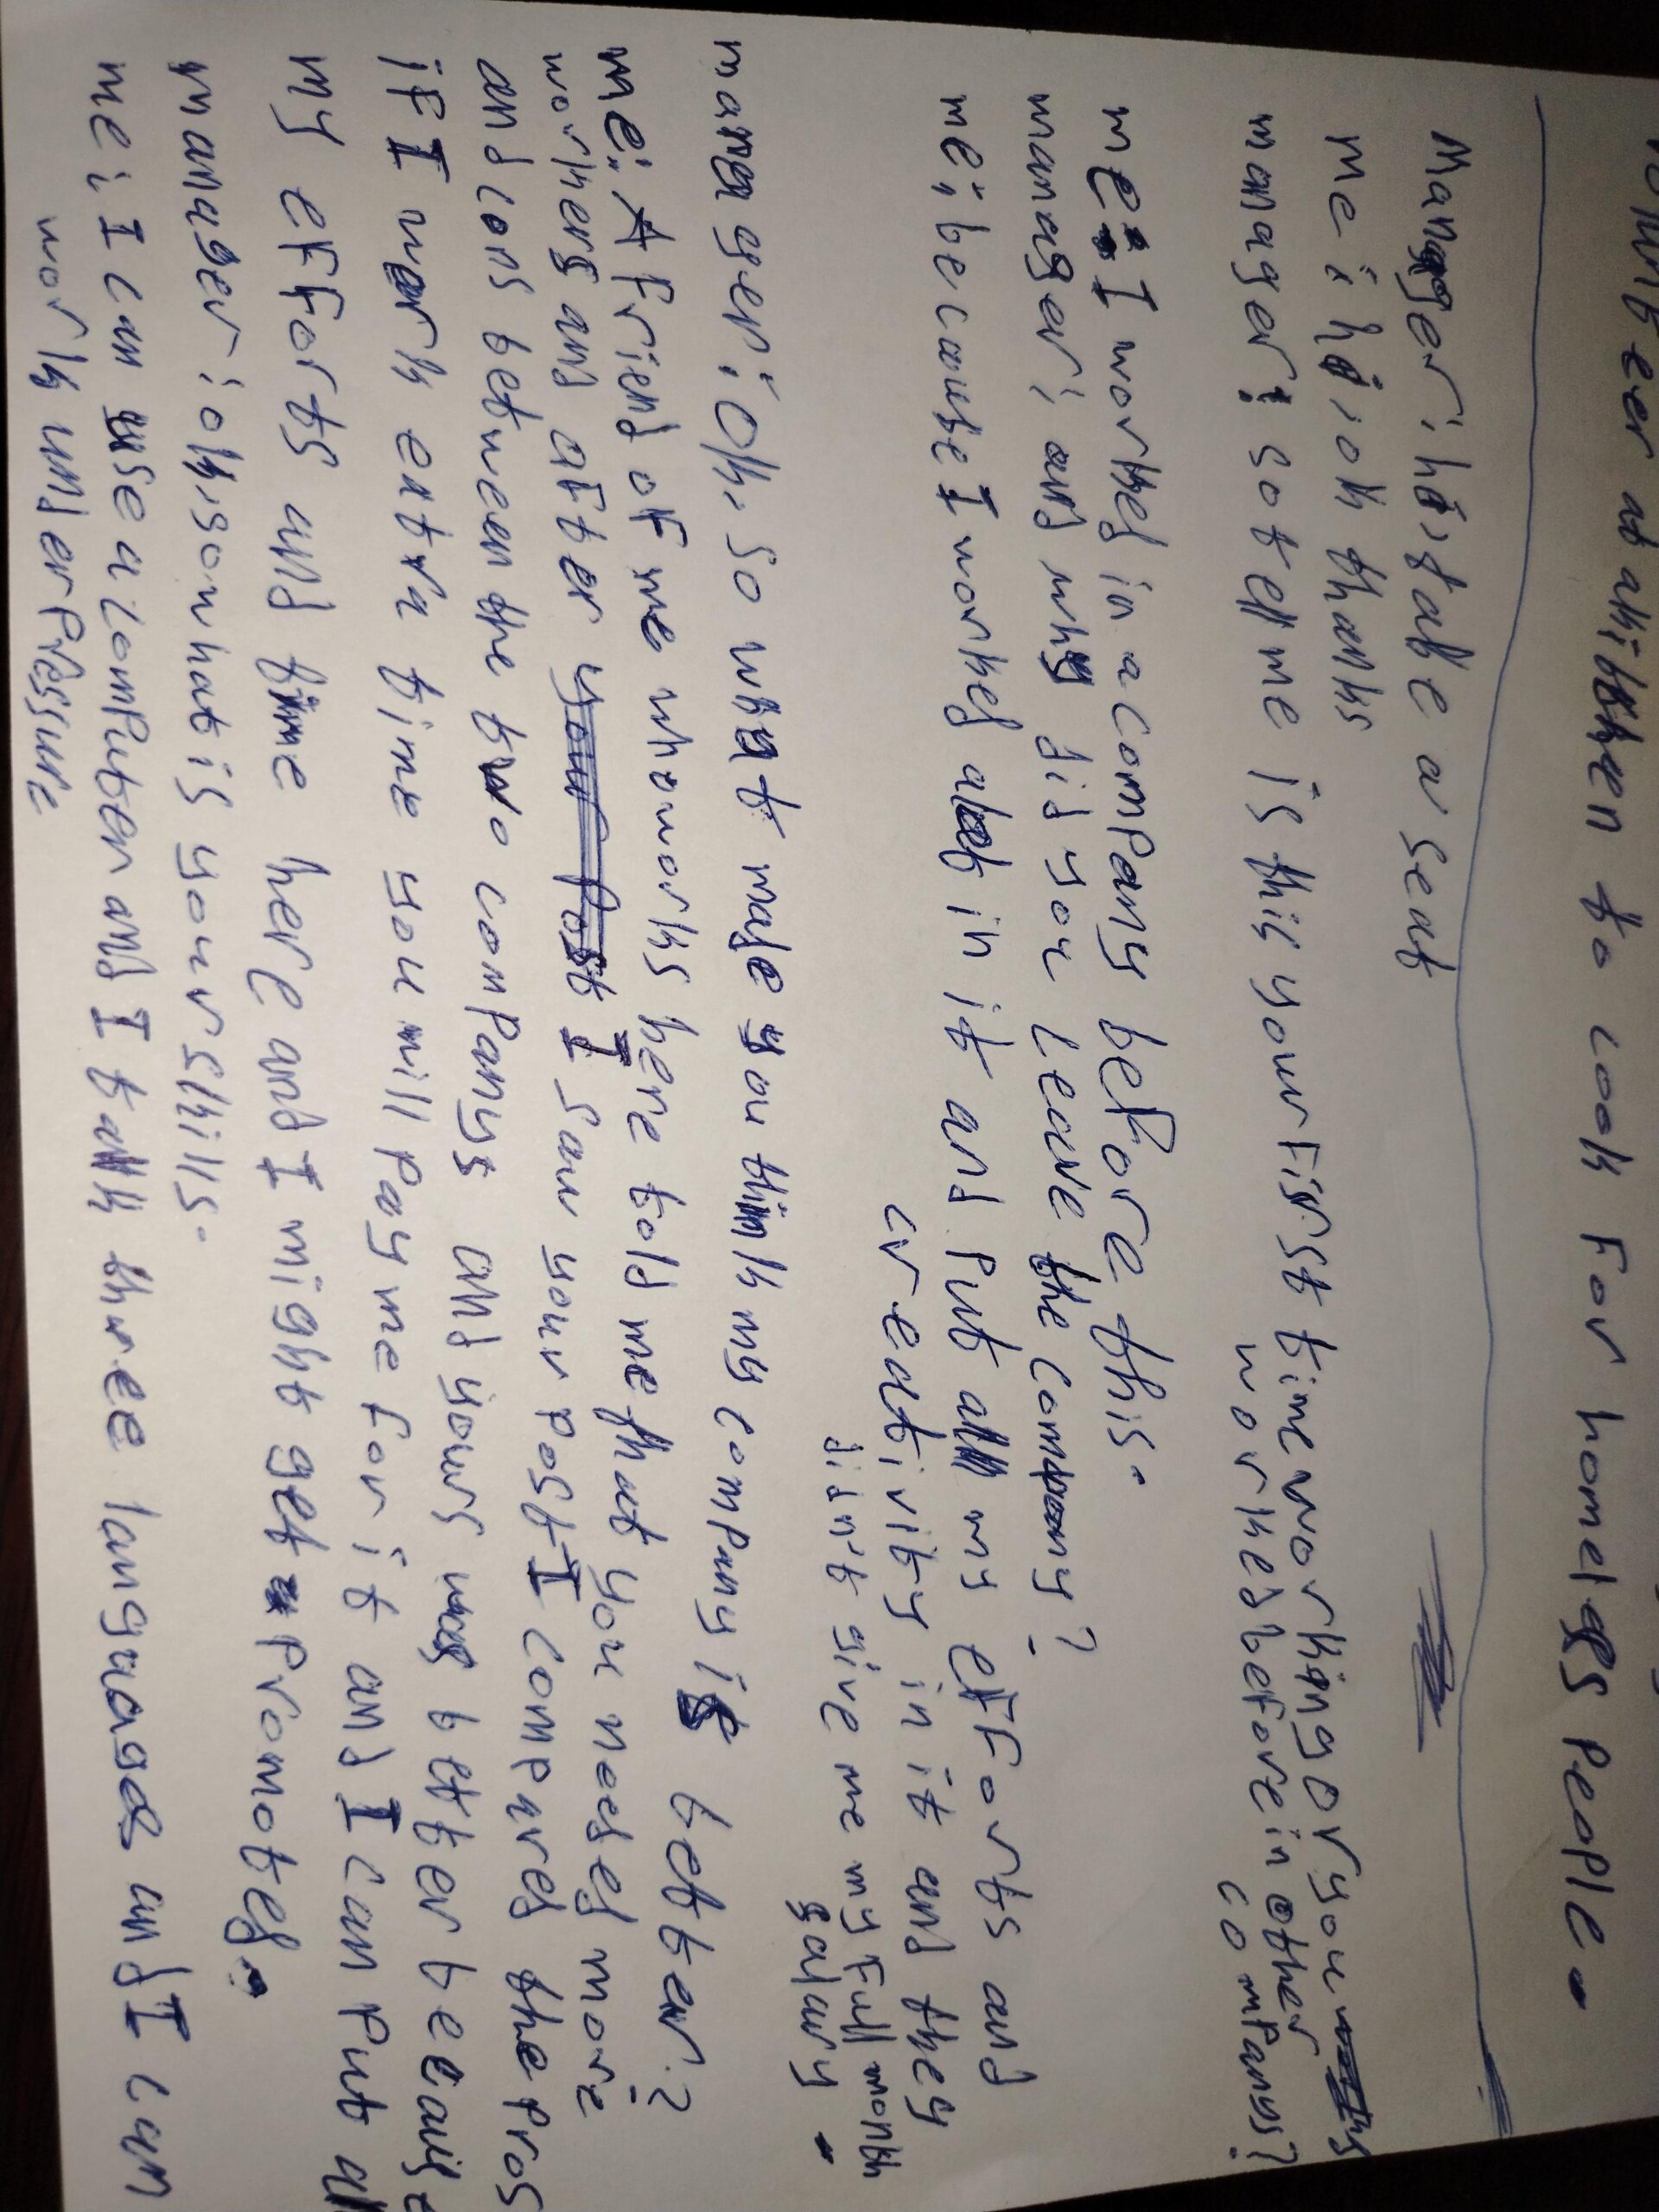 volunteer at a kitthen to cook For homeless people.
Manager: hi, take a seat
me: hi, ok thanks
manager: so tell me is this your First time working or you
worked before in other
companys?
me: I worked in a company before this.
manager: and why did you leave the company?
me: because I worked alot in it and put all my efforts and
creativity in it and they
didn't give me my Full month
salary.
manager: Ok, so what made you think my company is better?
me: A friend of me who works here told me that you needed more
workers and after I saw your post I compared the pros
and cons between the two companys and yours was better because
if I work extra time you will pay me for it and I can put all
my efforts and time here and I might get promoted.
manager: ok, so what is your skills.
me: I can use a computer and I talk three languages and I can
work under pressure